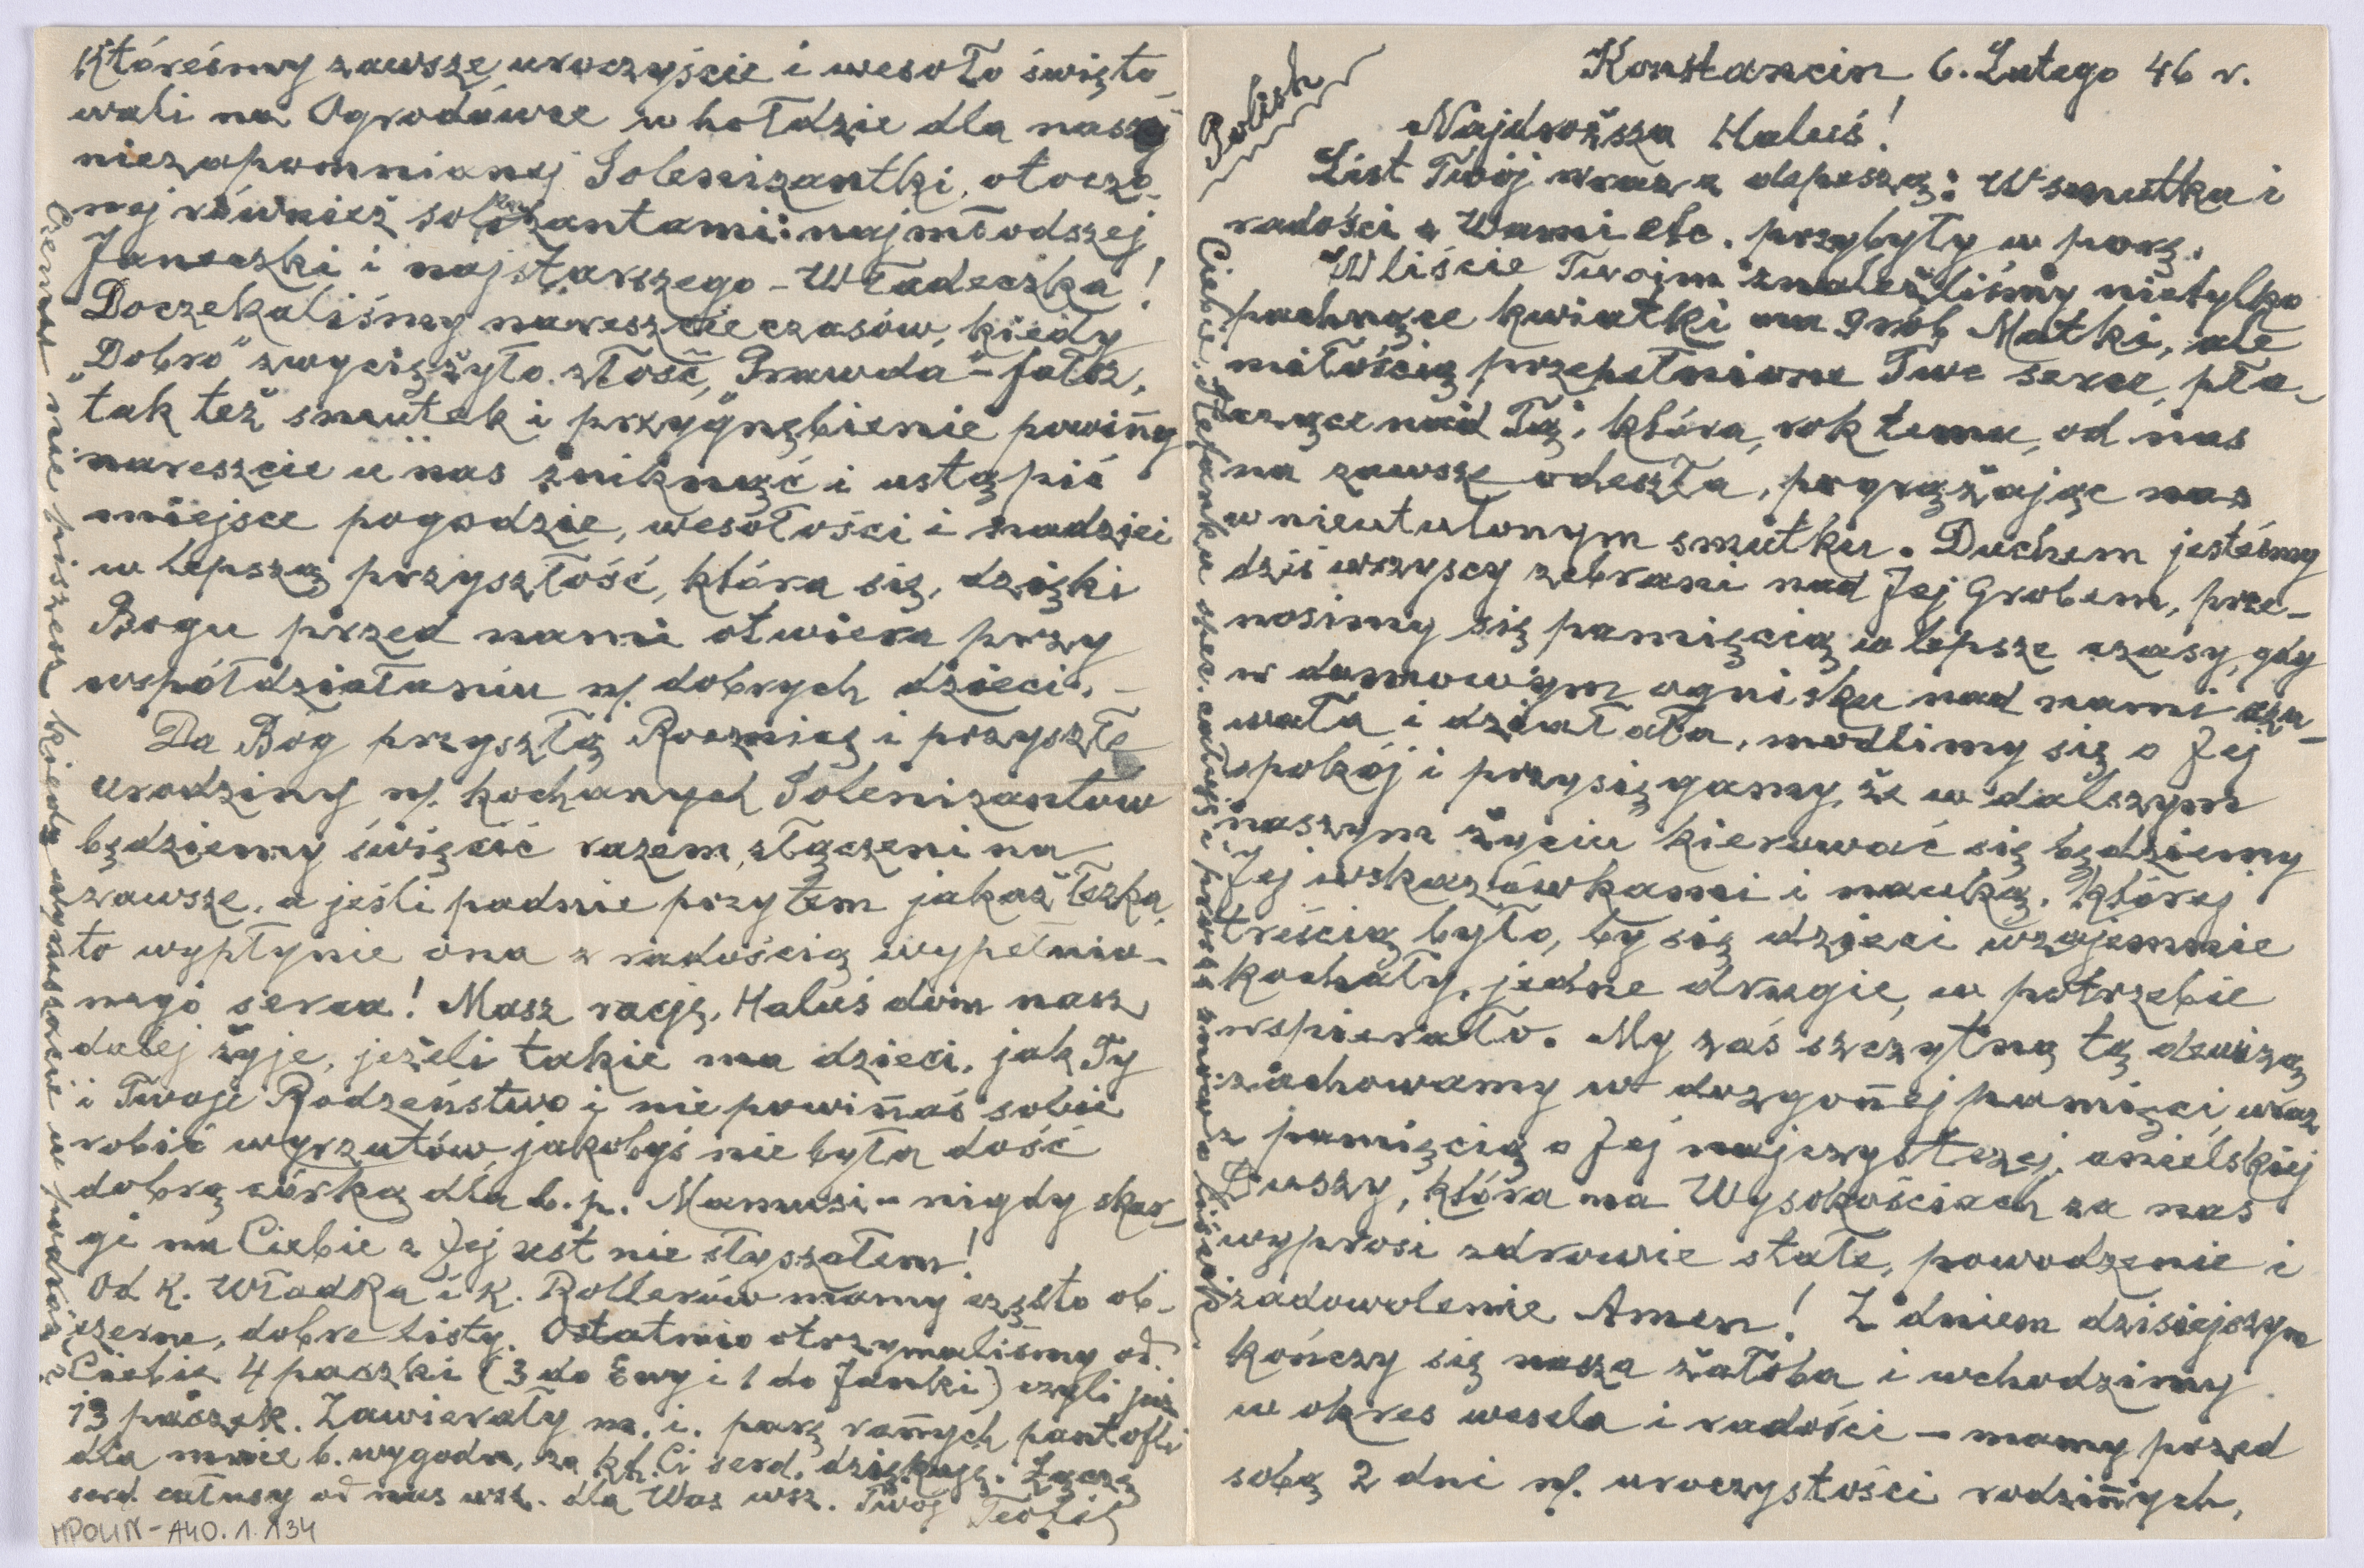 Polish
Konstancin 6. Lutego 46 r.
Najdroższa Haluś!
List Twój wraz z depeszą: W smutku i
radości z Wami etc. przybyły w porę.
W liście Twoim znaleźliśmy nietylko
pachnące kwiatki na grób Matki, ale
miłością przepełnione Twe serce, pła-
czące nad Tą, która, rok temu, od nas
na zawsze odeszła, pogrążając nas
w nieutulonym smutku. Duchem jesteśmy
dziś wszyscy zebrani nad Jej Grobem, prze-
nosimy się pamięcią w lepsze czasy, gdy
w domowym ognisku nad nami czu-
wała i działała, modlimy się o Jej
spokój i przysięgamy, że w dalszym
naszym życiu kierować się będziemy
Jej wskazówkami i nauką, której
treścią było, by się dzieci wzajemnie
kochały, jedne drugie, w potrzebie
wspierało. My zaś szczytną tą dewizą
zachowamy w dozgonnej pamięci, wraz
z pamięcią o Jej najczystszej, anielskiej
Duszy, która na Wysokościach za nas
wyprosi zdrowie stałe, powodzenie i
zadowolenie Amen! Z dniem dzisiejszym
kończy się nasza żałoba i wchodzimy
w okres wesela i radości – mamy przed
sobą 2 dni n/. uroczystości rodzinnych,
któreśmy zawsze uroczyście i wesoło święto-
wali na Ogrodówce w hołdzie dla naszej
niezapomnianej Solenizantki, otoczo-
nej również solenizantami: najmłodszej
Janeczki i najstarszego – Władeczka!
Doczekaliśmy nareszcie czasów, kiedy
"Dobro" zwyciężyło złość, "Prawda" – fałsz,
tak też smutek i przygnębienie powinny
nareszcie u nas zniknąć i ustąpić
miejsce pogodzie, wesołości i nadziei
w lepszą przyszłość, która się, dzięki
Bogu przed nami otwiera przy
współdziałaniu n/. dobrych dzieci. –
Da Bóg przyszłą Rocznicę i przyszłe
urodziny n/. kochanych Solenizantów
będziemy święcić razem, złączeni na
zawsze, a jeśli padnie przytem jakaś łezka,
to wypłynie ona z radością wypełnio-
nego serca! Masz rację, Haluś dom nasz
dalej żyje, jeżeli takie ma dzieci, jak Ty
i Twoje Rodzeństwo i nie powinnaś sobie
robić wyrzutów, jakobyś nie była dość
dobrą córką dla b. p. Mamusi – nigdy skar-
gi na Ciebie z Jej ust nie słyszałem!
Od k. Władka i k. Rollerów mamy często ob-
szerne, dobre listy. Ostatnio otrzymaliśmy od
Ciebie 4 paczki (3 do Ewy i 1 do Janki) czyli już
13 paczek. Zawierały m. i. parę rannych pantofli
dla mnie b. wygodn., za kt. Ci serd. dziękuję. Łączę
serd. całusy od nas wsz. dla Was wsz. Twój Teofil
Czemu nie piszesz kiedy wyruszacie w podróż?
Ciebie, Stefanku spec. całuję i proszę znowu o liścik.
MPOLIN-A40.1.134